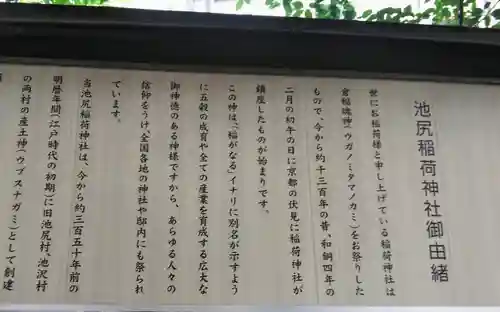 池尻稲荷神社御由緒
世にお稲荷様と申し上げている稲荷神社は
倉稲魂神(ウガノミタマノカミ)をお祭りした
もので、今から約千三百年の昔、和銅四年の
二月の初午の日に京都の伏見に稲荷神社が
鎮座したものが始まりです。
この神は、「稲がなる」イナリに別名が示すよう
に五穀の成育や全ての産業を育成する広大な
御神徳のある神様ですから、あらゆる人々の
信仰をうけ、全国各地の神社や邸内にも祭られ
ています。
当池尻稲荷神社は、今から約三百五十年前の
明暦年間(江戸時代の初期)に旧池尻村、池沢村
の両村の産土神(ウブスナガミ)として創建